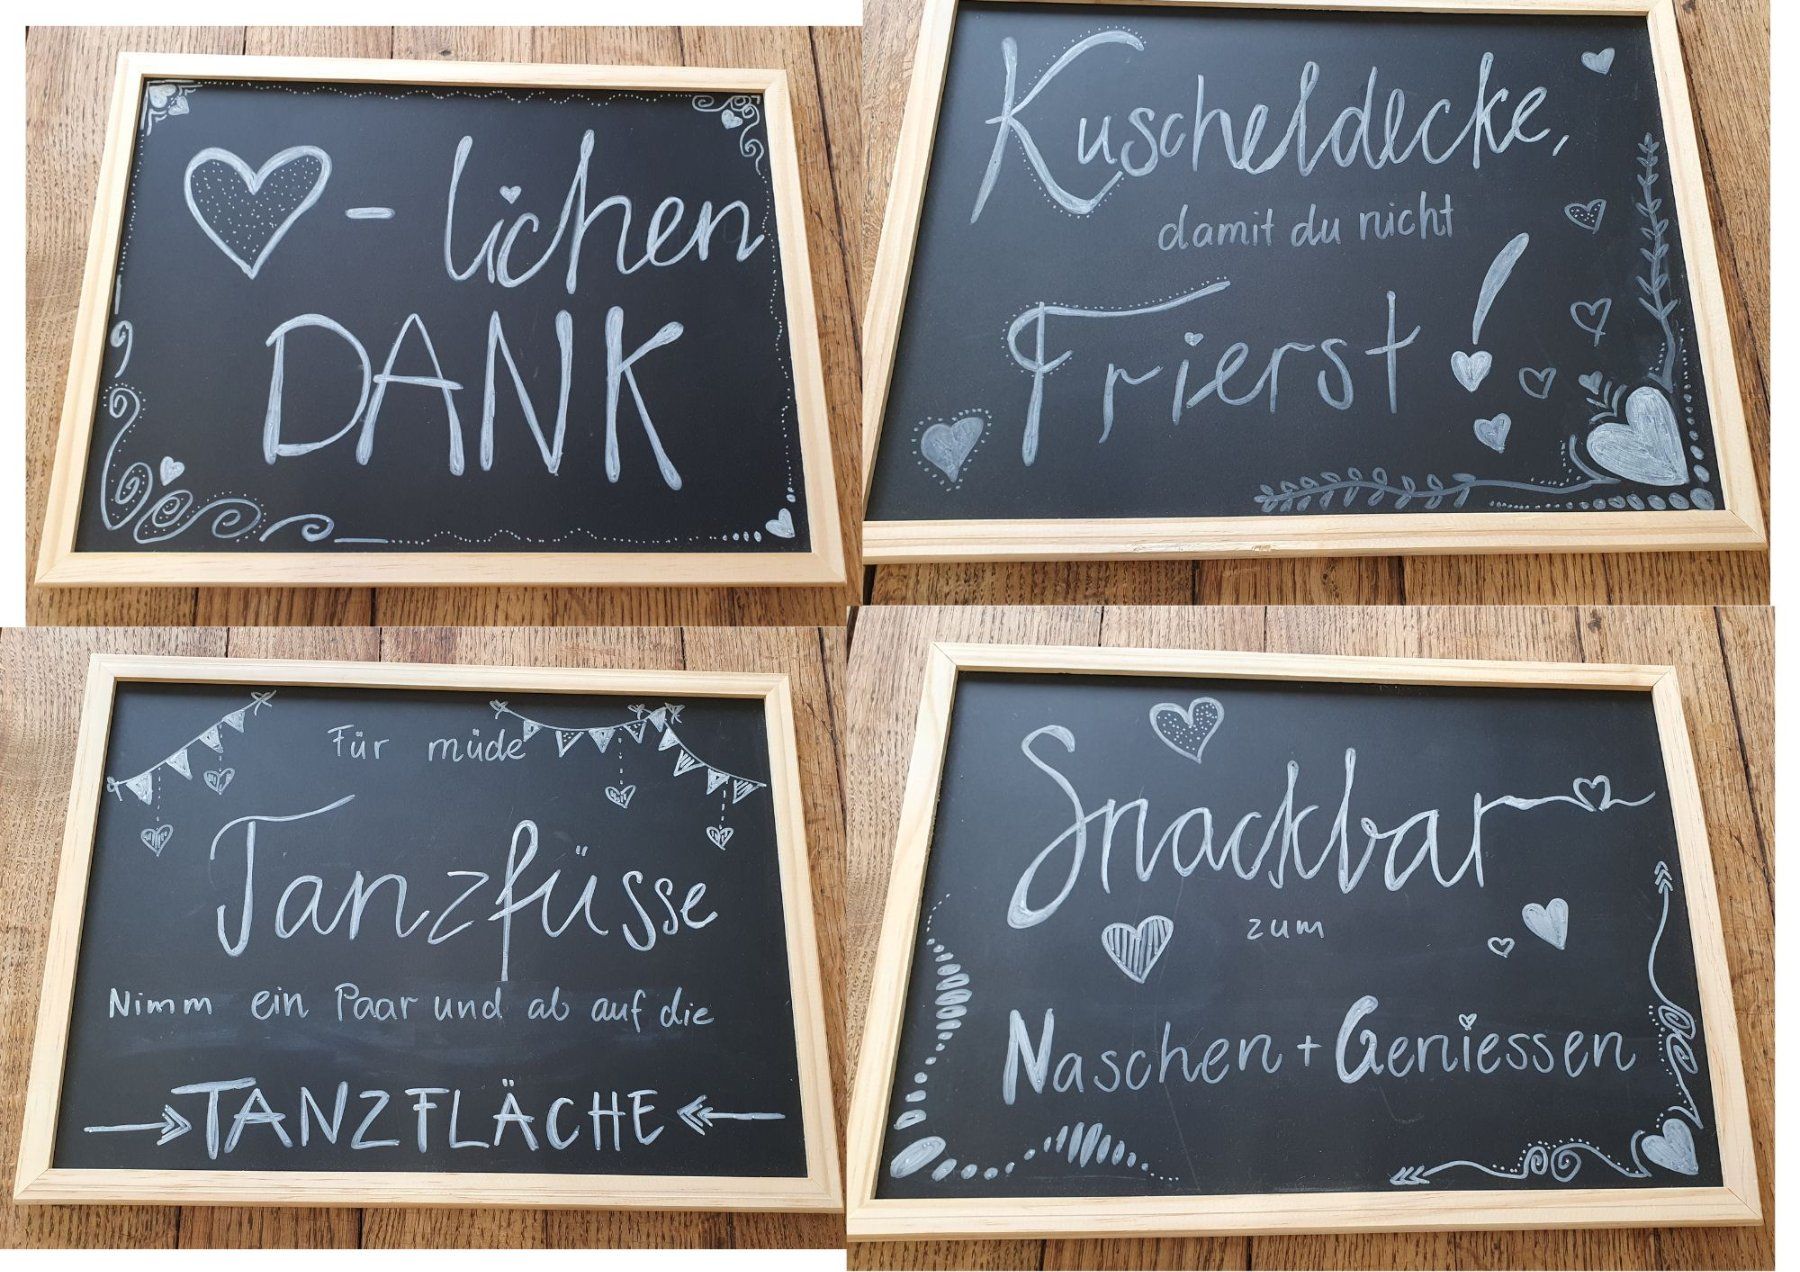 ♡-lichen
DANK
Kuscheldecke,
damit du nicht
Frierst!
Für müde
Tanzfüsse
Nimm ein Paar und ab auf die
TANZFLÄCHE
Snackbar
zum
Naschen + Geniessen